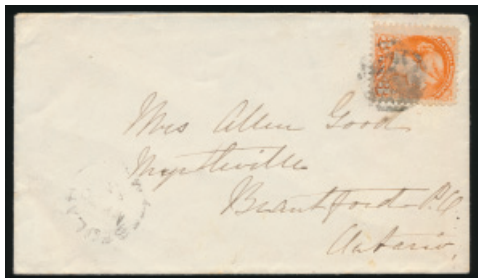 Mrs Allen Good
Myrtleville
Brantford P.O.
Ontario